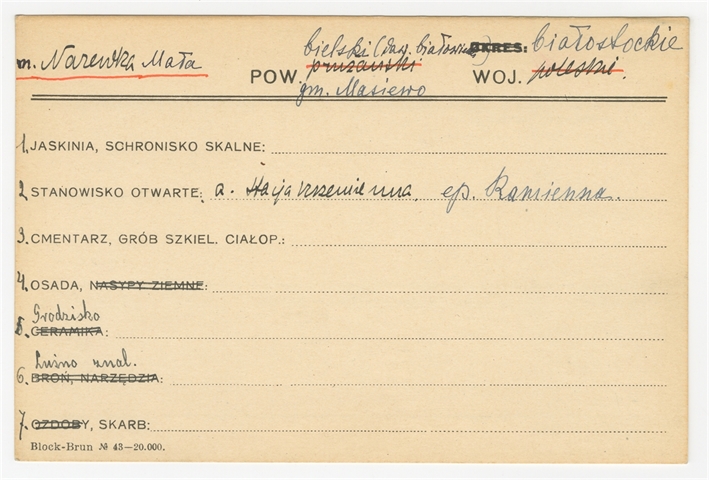 m. Narewka Mała
bielski (daw. białowies.) OKRES: białostockie
POW. prużański WOJ. poleskie.
gm. Masiewo
1. JASKINIA, SCHRONISKO SKALNE:
2. STANOWISKO OTWARTE: a. krzemienna, ep. Kamienna.
3. CMENTARZ, GRÓB SZKIEL. CIAŁOP.:
4. OSADA, NASYPY ZIEMNE:
Grodzisko
5. CERAMIKA:
Luźno znal.
6. BROŃ, NARZĘDZIA:
7. OZDOBY, SKARB:
Block-Brun № 43—20.000.